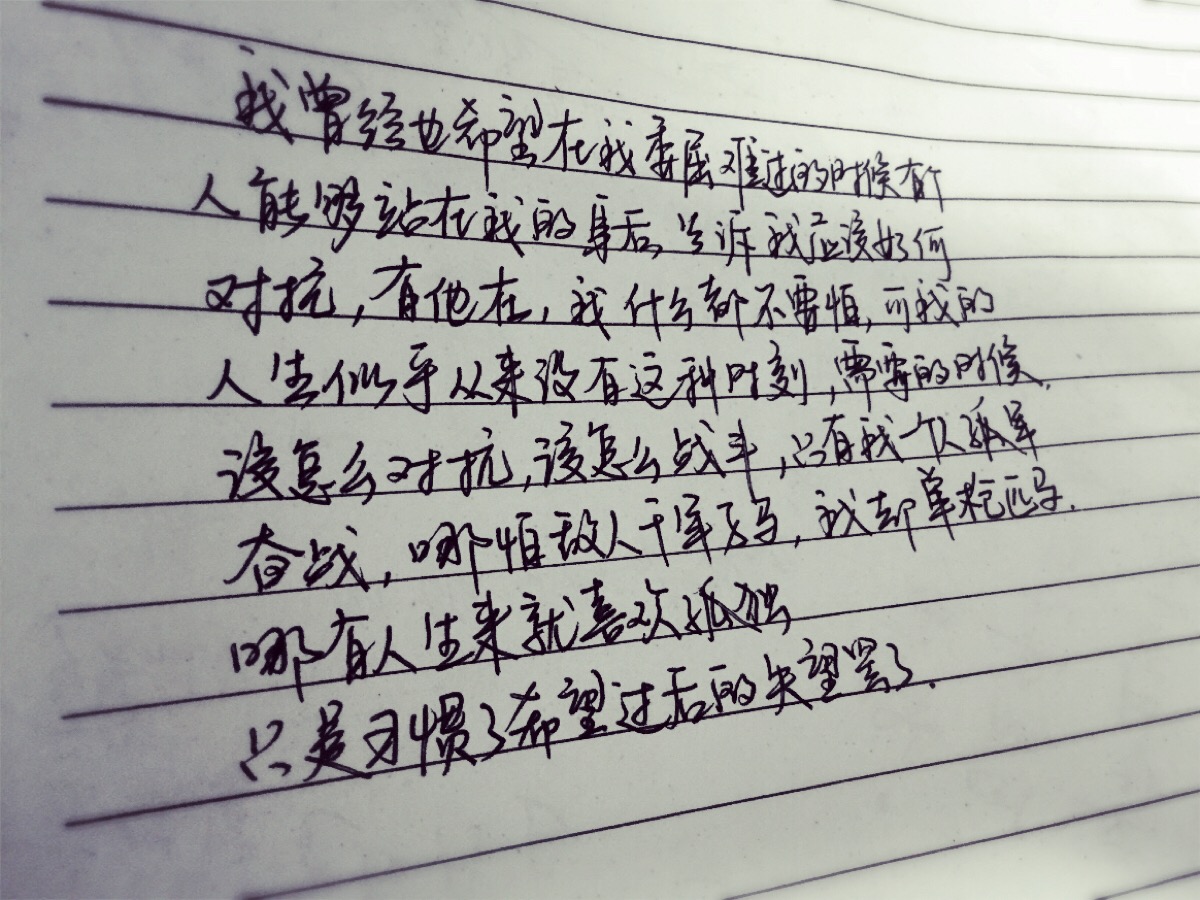 我曾经也希望在我委屈难过的时候有个
人能够站在我的身后,告诉我应该如何
对抗,有他在,我什么都不需怕,可我的
人生似乎从来没有这种时刻,需要的时候.
该怎么对抗,该怎么战斗,只有我一个人孤军
奋战,哪怕敌人千军万马,我却单枪匹马.
哪有人生来就喜欢孤独
只是习惯了希望过后的失望罢了.